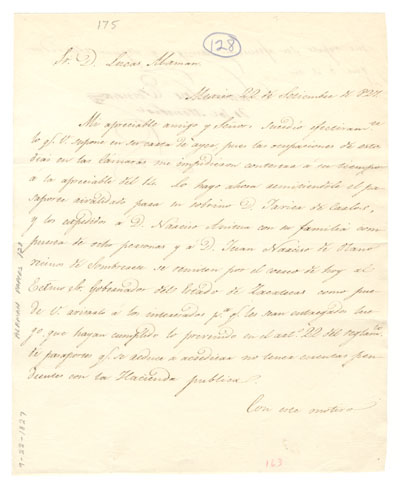 175
128
Sr. D. Lucas Alaman
Mexico 22 de Setiembre de 1827
Mi apreciable amigo y Señor: sucedio efectivam.te
lo q.e V. supone en su carta de ayer, pues las ocupaciones de estos
dias en las Camaras me impidieron contestar a su tiempo
a la apreciable del 14. Lo hago ahora remitiendole el pa-
saporte para su sobrino D.
y los expedidos a D. Narciso con su familia com-
puesta de ocho personas y a D. Juan Narciso de
vecinos de Sombrerete se remiten por el correo de hoy al
Exmo. Sr. Gobernador del Estado de Zacatecas como pue-
de V. avisarlo a los interesados p.a q.e les sean entregados lue-
go que hayan cumplido lo prevenido en el art.o 22 del reglam.to
de pasaportes q.e se reduce a acreditar no tener cuentas pen-
dientes con la Hacienda publica.
Con este motivo
ALAMAN PAPERS 128
9-22-1827
163